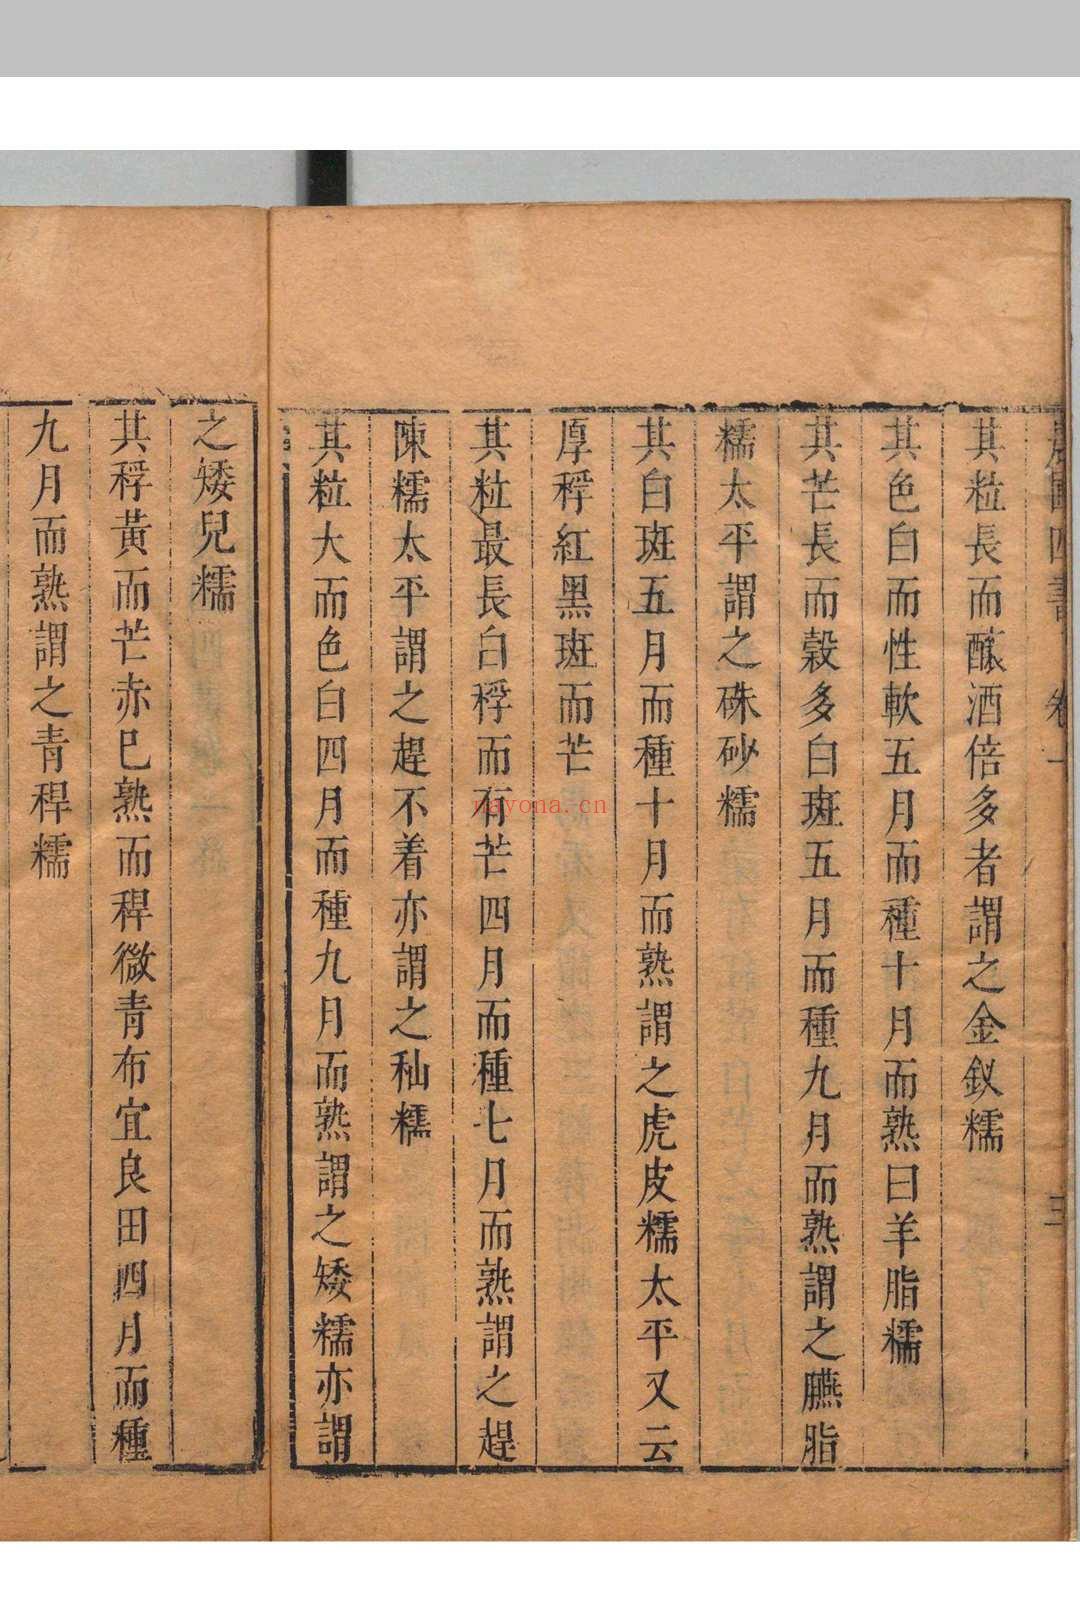 農圃四書 卷一 三
其粒長而釀酒倍多者謂之金釵糯
其色白而性軟五月而種十月而熟曰羊脂糯
其芒長而穀多白斑五月而種九月而熟謂之臙脂
糯太平謂之硃砂糯
其白斑五月而種十月而熟謂之虎皮糯太平又云
厚稃紅黑斑而芒
其粒最長白稃而有芒四月而種七月而熟謂之趕
陳糯太平謂之趕不着亦謂之秈糯
其粒大而色白四月而種九月而熟謂之矮糯亦謂
之矮兒糯
其稃黃而芒赤巳熟而稈微青布宜良田四月而種
九月而熟謂之青稈糯
nayona.cn